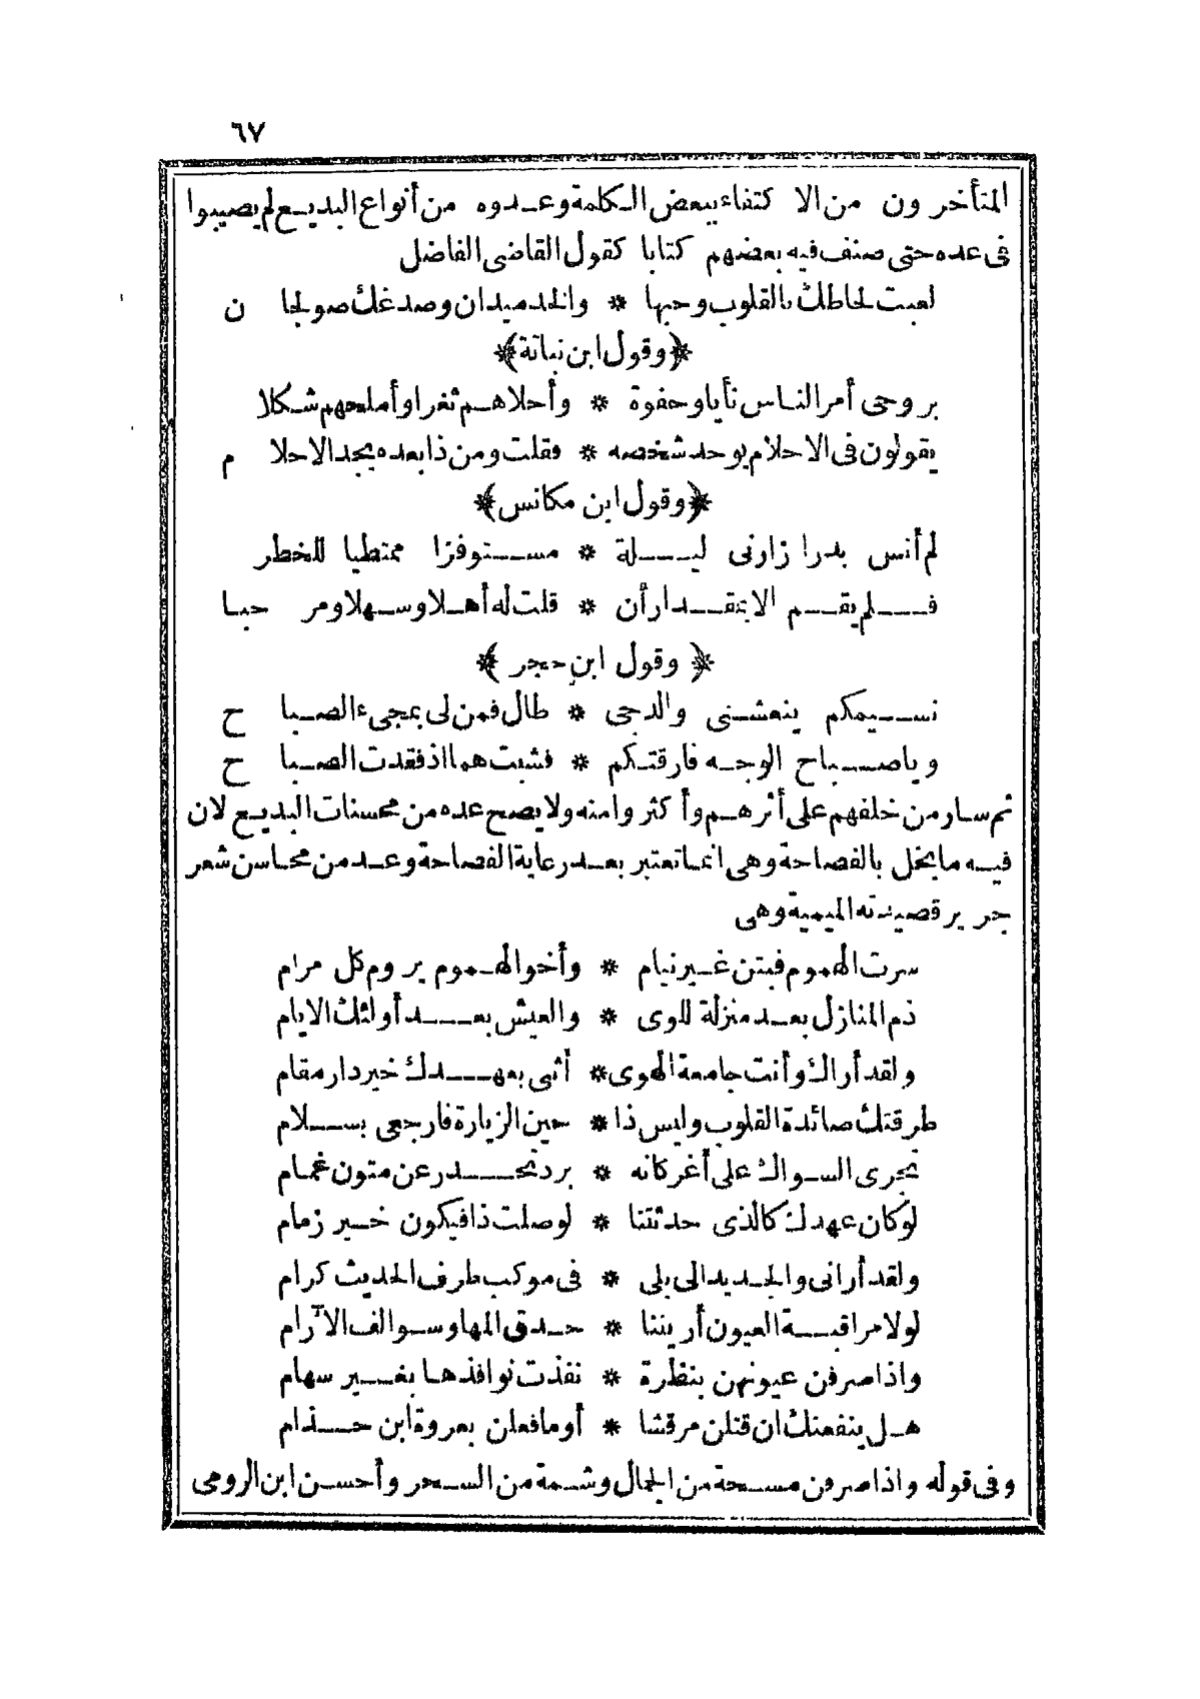 ٦٧
المتأخرون من الاكتفاء ببعض الكلمة وعدوه من أنواع البديع لم يصيبوا
فى عده حتى صنف فيه بعضهم كتابا كقول القاضى الفاضل
لعبت لحاظك بالقلوب وحبها * والخد ميدان وصدغك صولجا ن
﴿وقول ابن نباتة﴾
بروحى أمر الناس نأيا وجفوة * وأحلاهم ثغرا وأملحهم شكلا
يقولون فى الاحلام يوجد شخصه * فقلت ومن ذا بعده يجد الاحلا م
﴿وقول ابن مكانس﴾
لم أنس بدرا زارنى ليلة * مستوفزا ممتطيا للخطر
فلم يقم الا بمقدار أن * قلت له أهلا وسهلا ومر حبا
﴿وقول ابن حجر﴾
نسيمكم ينعشنى والدجى * طال فمن لى بمجىء الصبا ح
وياصباح الوجه فارقتكم * فشبت هما اذ فقدت الصبا ح
ثم سار من خلفهم على أثرهم وأكثروا منه ولا يصح عده من محسنات البديع لان
فيه ما يخل بالفصاحة وهى انما تعتبر بعد رعاية الفصاحة وعد من محاسن شعر
جرير قصيدته الميمية وهى
سرت الهموم فبتن غير نيام * وأخو الهموم يروم كل مرام
ذم المنازل بعد منزلة اللوى * والعيش بعد أولئك الايام
ولقد أراك وأنت جامعة الهوى * أثنى بعهدك خير دار مقام
طرقتك صائدة القلوب وليس ذا * حين الزيارة فارجعى بسلام
تجرى السواك على أغر كانه * برد تحدر عن متون غمام
لو كان عهدك كالذى حدثتنا * لوصلت ذا فيكون خير زمام
ولقد أرانى والجديد الى بلى * فى موكب طرف الحديث كرام
لولا مراقبة العيون أريننا * حدق المها وسوالف الآرام
واذا صرفن عيونهن بنظرة * نفذت نوافذها بغير سهام
هل ينفعنك ان قتلن مرقشا * أو ما فعلن بعروة ابن حذام
وفى قوله واذا صرفن مسحة من الجمال وشمة من السحر وأحسن ابن الرومى